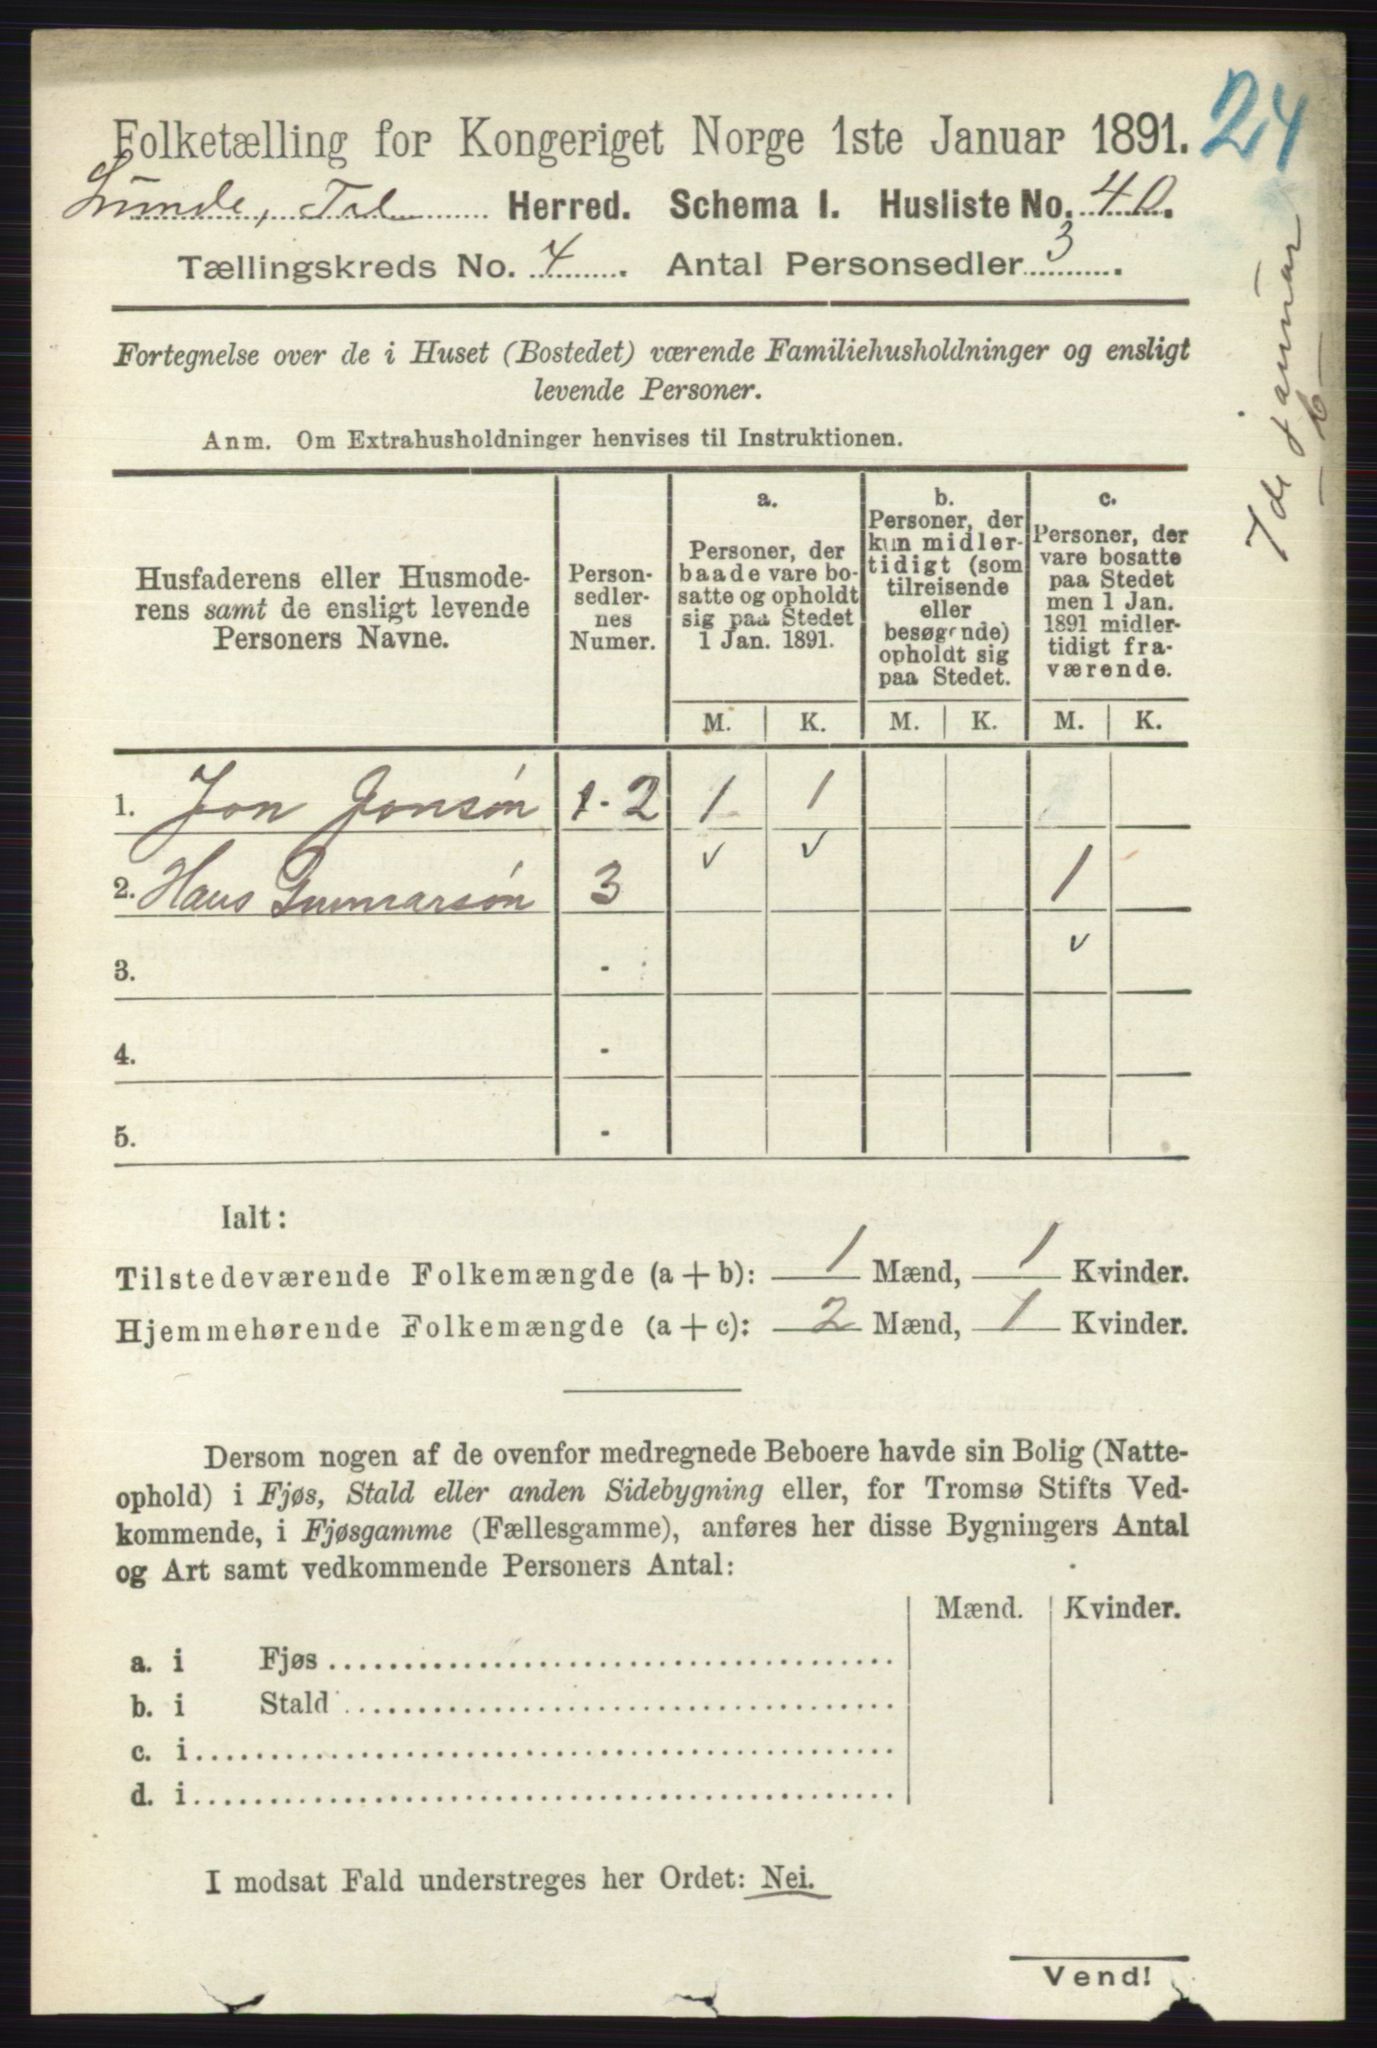 Folketælling for Kongeriget Norge 1ste Januar 1891.
24
Lunde, Tel Herred. Schema I. Husliste No. 40.
Tællingskreds No. 4. Antal Personsedler 3.
7de januar
Fortegnelse over de i Huset (Bostedet) værende Familiehusholdninger og ensligt
levende Personer.
Anm. Om Extrahusholdninger henvises til Instruktionen.
Husfaderens eller Husmode-
rens samt de ensligt levende
Personers Navne.
Person-
sedler-
nes
Numer.
a.
Personer, der
baade vare bo-
satte og opholdt
sig paa Stedet
1 Jan. 1891.
b.
Personer, der
kun midler-
tidigt (som
tilreisende
eller
besøgende)
opholdt sig
paa Stedet.
c.
Personer, der
vare bosatte
paa Stedet
men 1 Jan.
1891 midler-
tidigt fra-
værende.
M. K. M. K. M. K.
1. Jon Jonsøn 1-2 1 1
✓ ✓
2. Hans Gunnarsøn 3 1
✓
3. -
4. -
5. -
Ialt:
Tilstedeværende Folkemængde (a + b): 1 Mænd, 1 Kvinder.
Hjemmehørende Folkemængde (a + c): 2 Mænd, 1 Kvinder.
Dersom nogen af de ovenfor medregnede Beboere havde sin Bolig (Natte-
ophold) i Fjøs, Stald eller anden Sidebygning eller, for Tromsø Stifts Ved-
kommende, i Fjøsgamme (Fællesgamme), anføres her disse Bygningers Antal
og Art samt vedkommende Personers Antal:
Mænd. Kvinder.
a. i Fjøs
b. i Stald
c. i
d. i
I modsat Fald understreges her Ordet: Nei.
Vend!